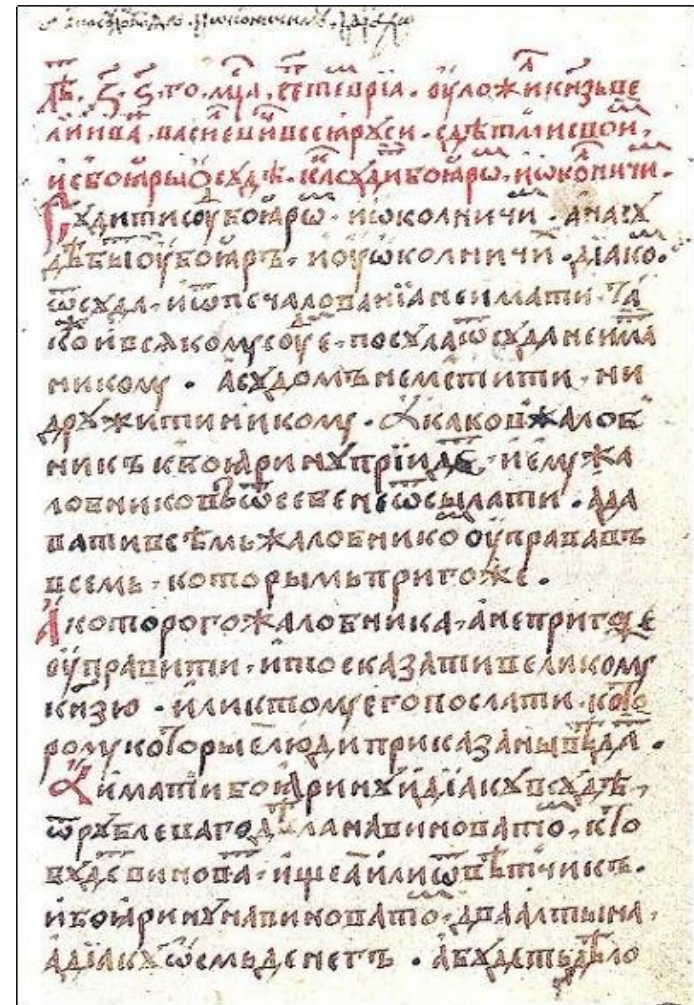 лѣ. ҂ѕ҃. ѕ҃. го. мц҃а. септеврїа. ѹложи кн҃зь ве
ликїи іва. василеви всеꙗ руси. с дѣтми своими.
и с боꙗры ѡ сѫдѣ. каⷦ҇ сѫди боꙗрѡⷨ. и ѡколничиⷨ.
Сѫдити сѫⷣ боꙗрѡⷨ. и ѡколничиⷨ. а на сѫ
дѣ быⷮ ѹ боꙗръ. и ѹ ѡколничиⷯ. дїакоⷨ.
ѿ сѫда. и ѿ печалованїа не имати. та
коⷤ и всꙗкомꙋ сѹⷣе. посула ѿ сѹда не има
никомꙋ. а сѹдомъ не мстити. ни
дрѹжити никомꙋ. А каков жалоб
никъ к боꙗринꙋ прїидеⷮ. и емꙋ жа
лобниковъ ѿ себе не ѿсылати. а да
вати всѣмь жалобникоⷨ ѹправа въ
всемь. которымь пригоже.
А которого жалобника. а не пригоже
ѹправити. и то сказати великомꙋ
кн҃зю. или к томꙋ его послати. кото
ромꙋ которые люди приказаны вѣдаⷮ.
А имати боꙗринꙋ и дїакꙋ в сѫдѣ.
ѿ рꙋблеваго дѣла на виноватоⷨ. кто
бѫдеⷮ виноваⷮ. ищеа или ѿвѣтчикъ.
и боꙗринꙋ на виноватоⷨ. два алтына.
а дїакꙋ ѡсмь денегъ. а бѫдеть дѣло